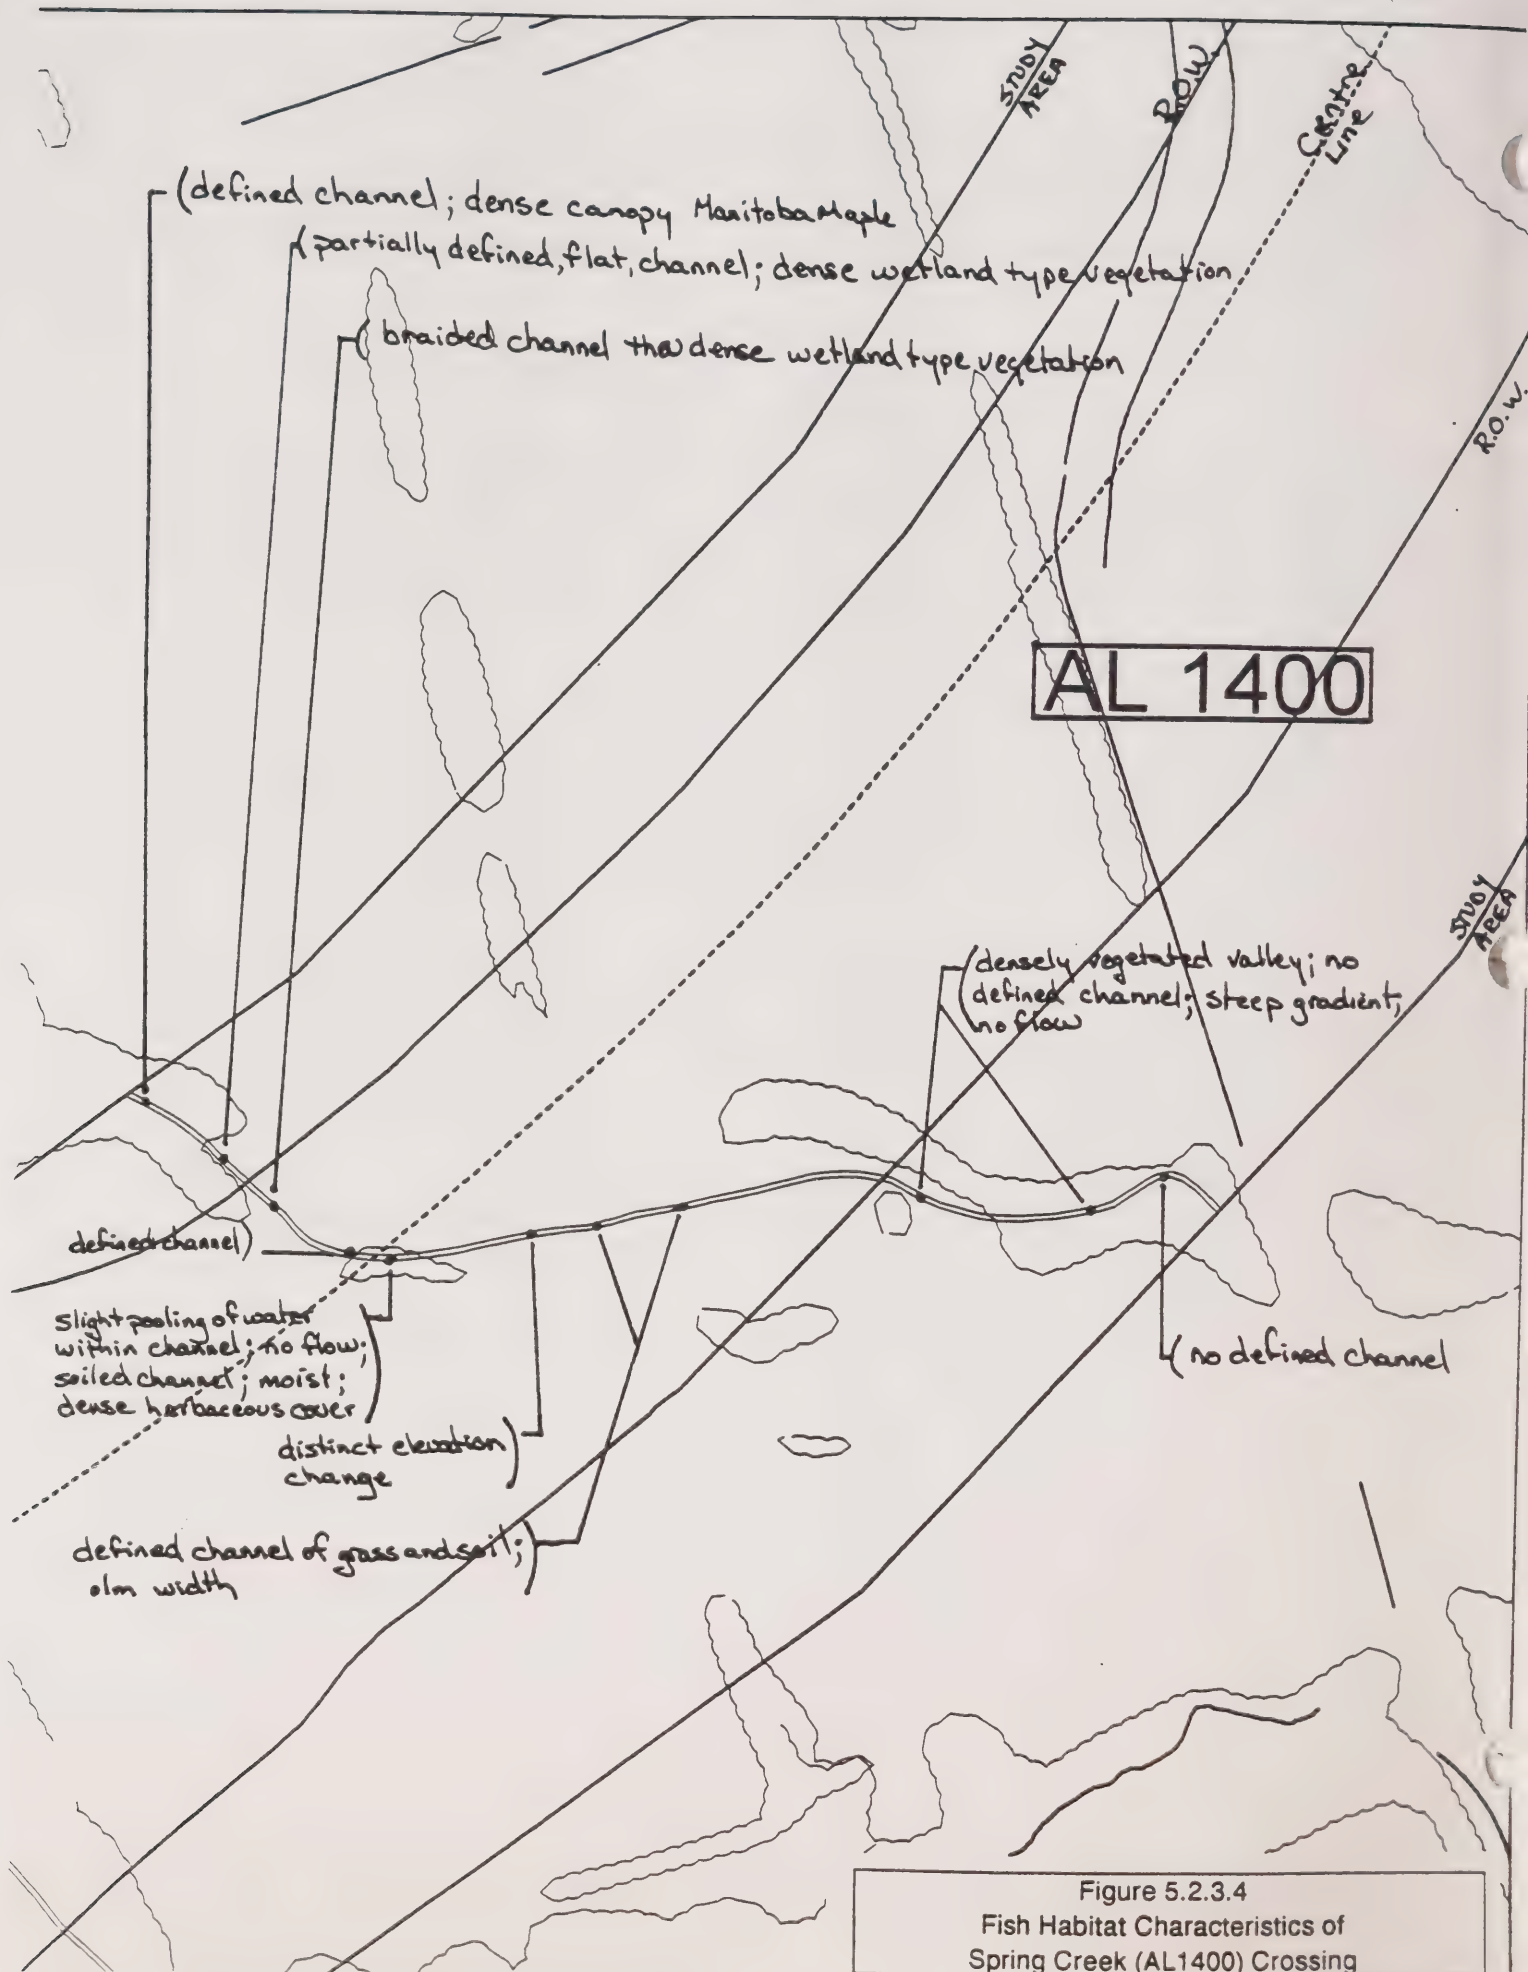 STUDY
AREA
R.O.W.
Centre
Line
(defined channel; dense canopy Manitoba Maple
(partially defined, flat, channel; dense wetland type vegetation
(braided channel thru dense wetland type vegetation
R.O.W.
AL 1400
STUDY
AREA
(densely vegetated valley; no
defined channel; steep gradient;
no flow
defined channel)
slight pooling of water
within channel; no flow;
soiled channel; moist;
dense herbaceous cover)
(no defined channel
distinct elevation)
change
defined channel of grass and soil;)
width
Figure 5.2.3.4
Fish Habitat Characteristics of
Spring Creek (AL1400) Crossing